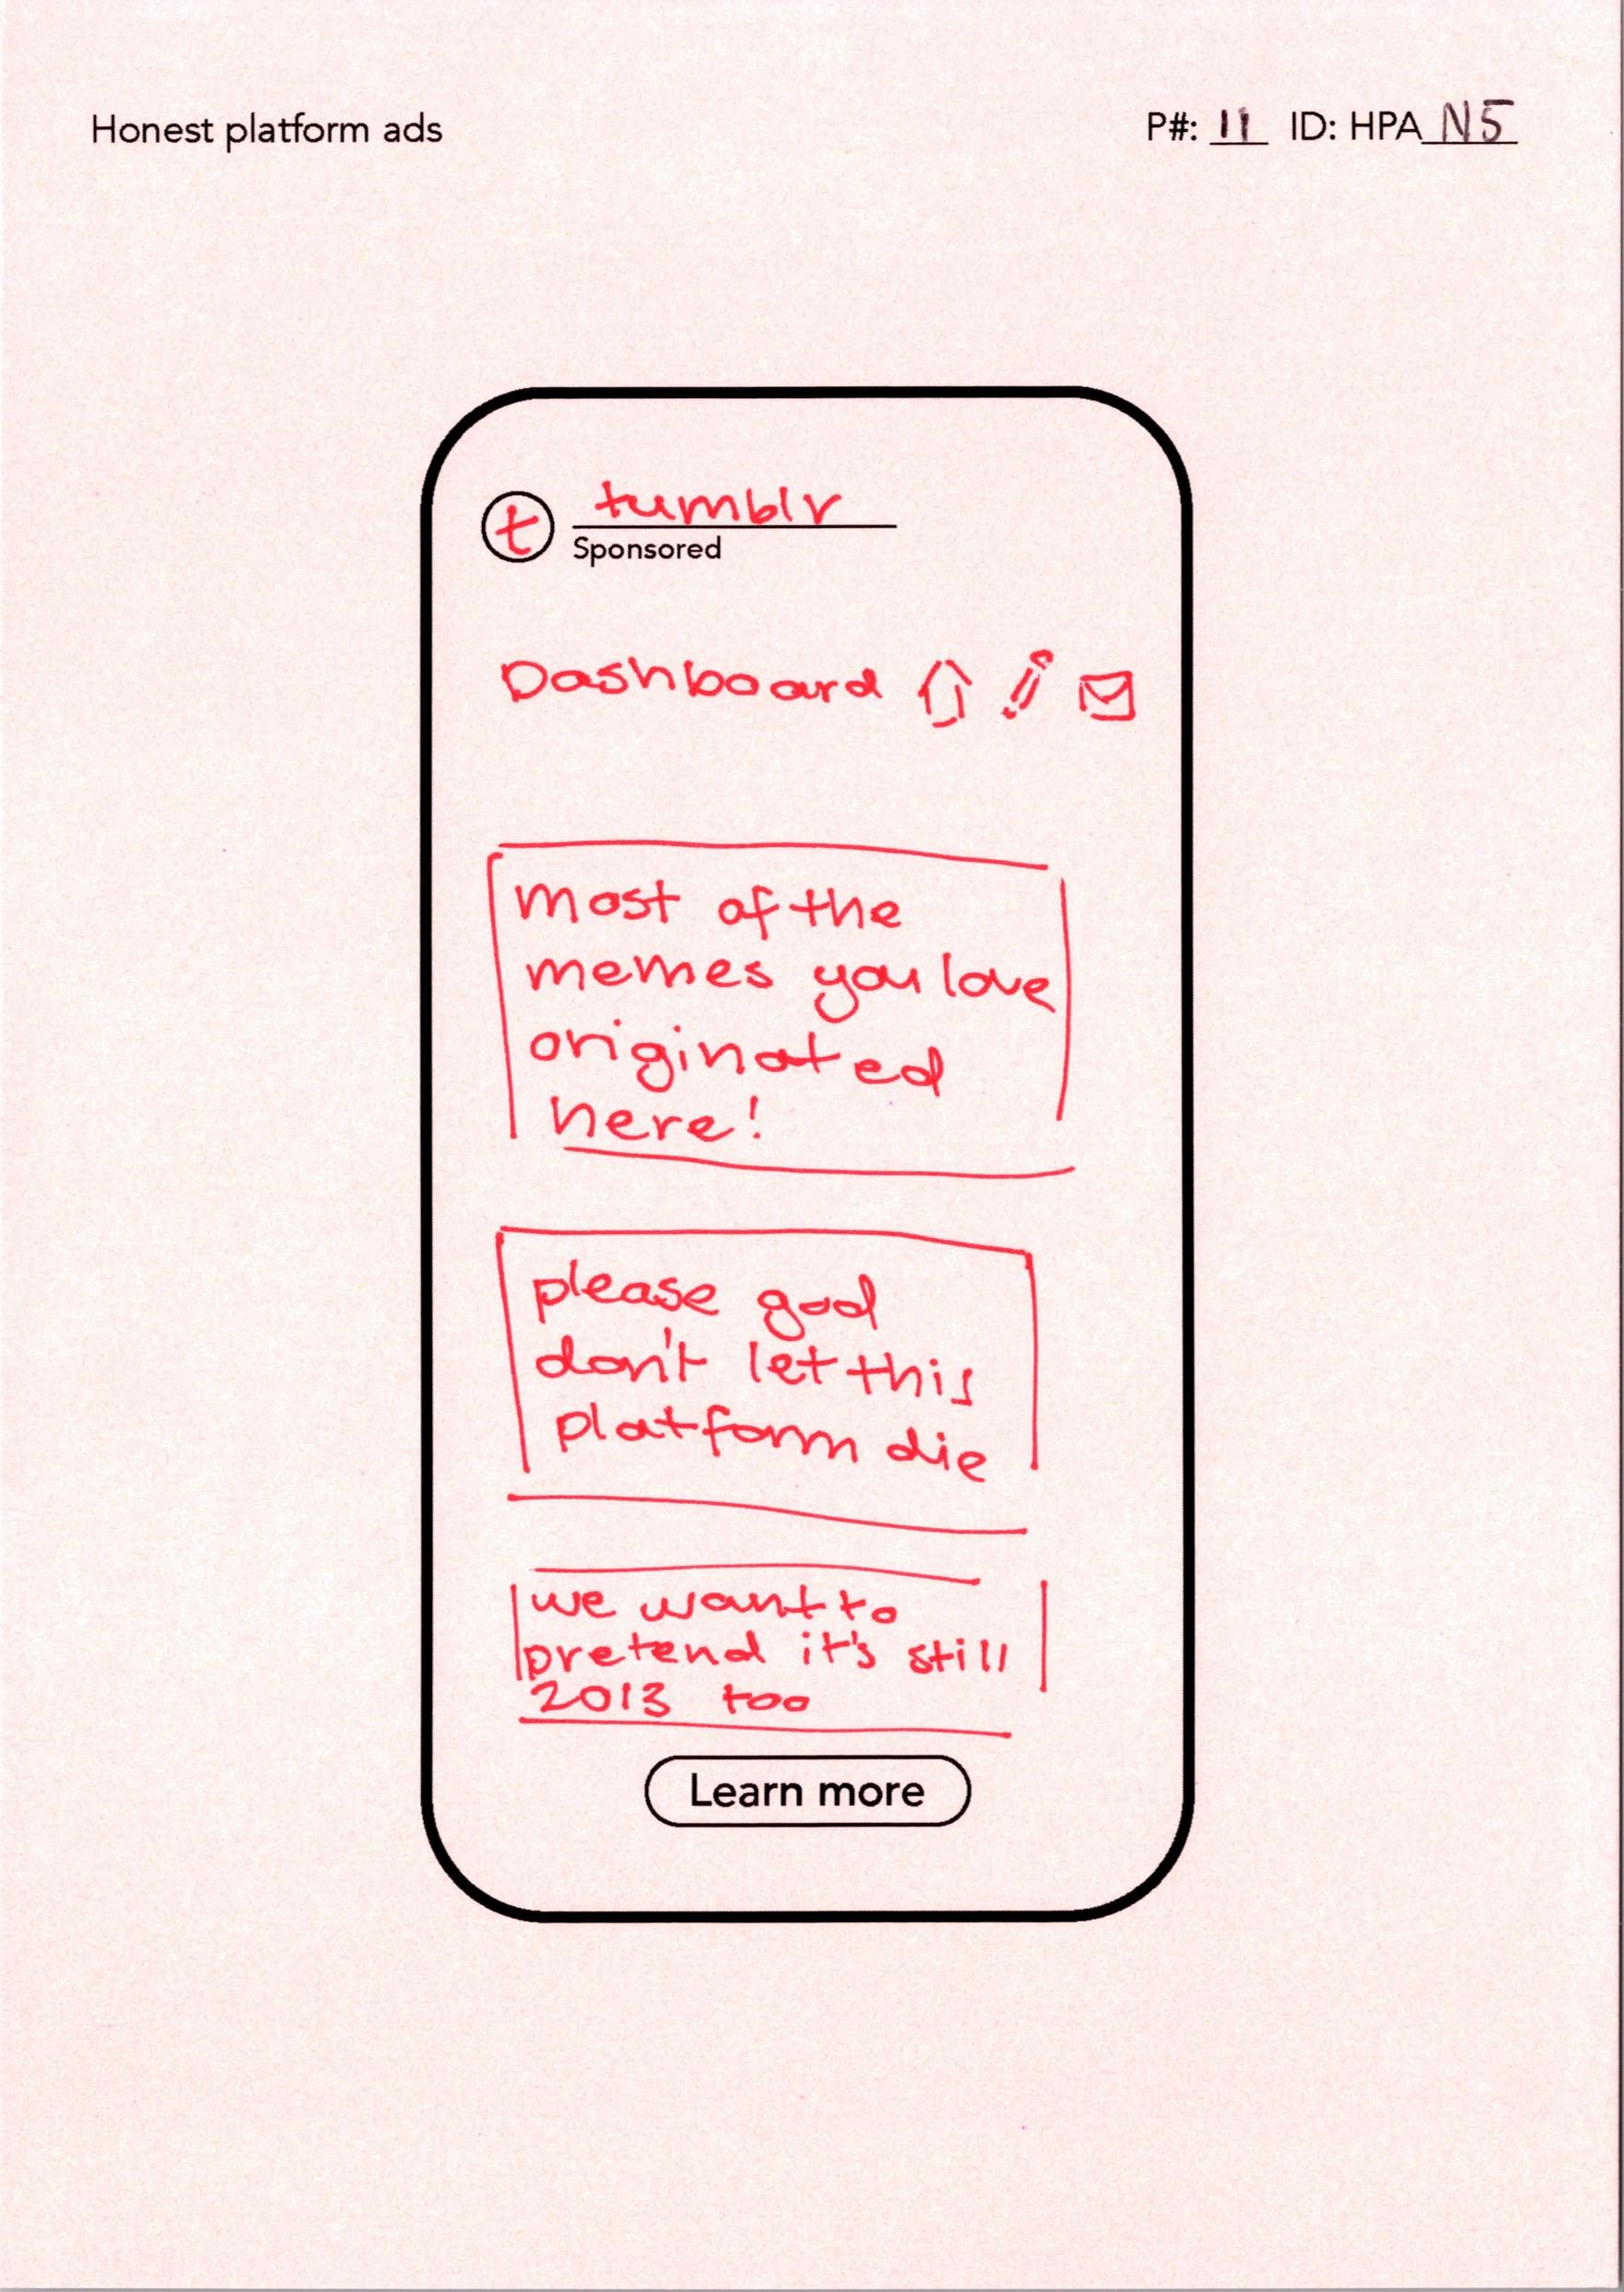 Honest platform ads
P#: 11 ID: HPA N5
t tumblr
Sponsored
Dashboard
most of the
memes you love
originated
here!
please god
don't let this
platform die
we want to
pretend it's still
2013 too
Learn more